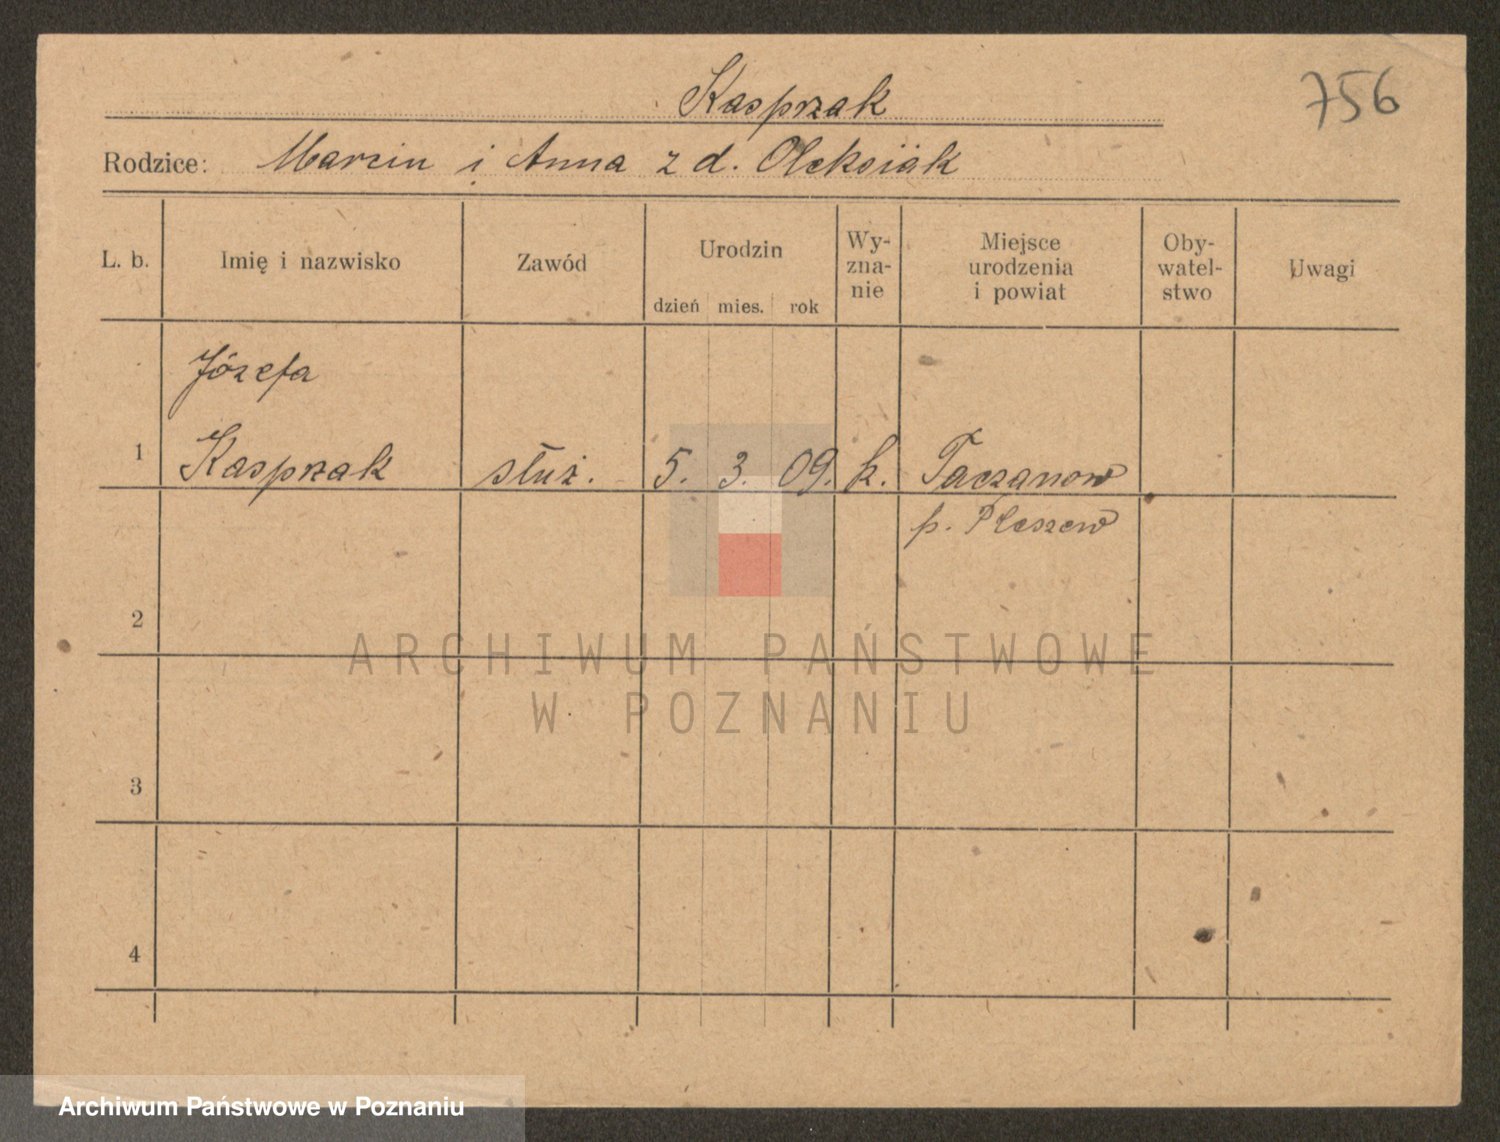 Kasprzak
756
Rodzice: Marcin i Anna z d. Oleksiak
L. b.
Imię i nazwisko
Zawód
Urodzin
dzień mies. rok
Wy-
zna-
nie
Miejsce
urodzenia
i powiat
Oby-
watel-
stwo
Uwagi
Józefa
1 Kasprzak służ. 5. 3. 09. k. Taczanow
p. Pleszew
2
ARCHIWUM PAŃSTWOWE
W POZNANIU
3
4
Archiwum Państwowe w Poznaniu